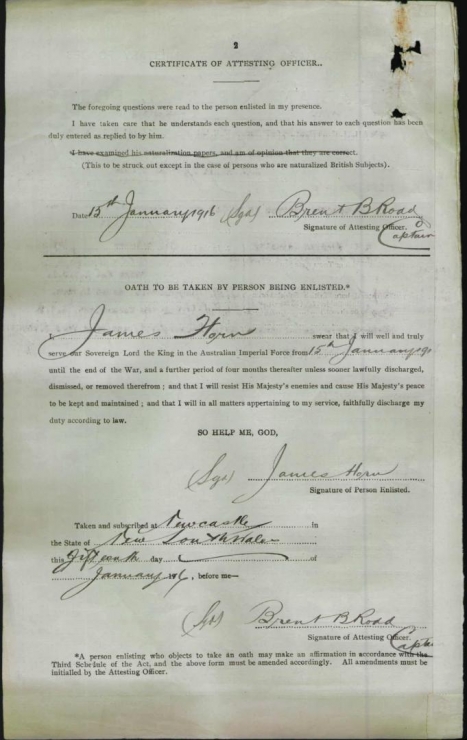 2
CERTIFICATE OF ATTESTING OFFICER.
The foregoing questions were read to the person enlisted in my presence.
I have taken care that he understands each question, and that his answer to each question has been
duly entered as replied to by him.
I have examined his naturalization papers, and am of opinion that they are correct.
(This to be struck out except in the case of persons who are naturalized British Subjects).
Date 15th January 1916 (Sgd) Brent B Rodd
Signature of Attesting Officer.
Captain
OATH TO BE TAKEN BY PERSON BEING ENLISTED.*
I, James Horn swear that I will well and truly
serve our Sovereign Lord the King in the Australian Imperial Force from 15th January 191
until the end of the War, and a further period of four months thereafter unless sooner lawfully discharged,
dismissed, or removed therefrom ; and that I will resist His Majesty's enemies and cause His Majesty's peace
to be kept and maintained ; and that I will in all matters appertaining to my service, faithfully discharge my
duty according to law.
SO HELP ME, GOD,
(Sgd) James Horn
Signature of Person Enlisted.
Taken and subscribed at Newcastle in
the State of New South Wales
this Fifteenth day of
January 1916, before me—
(Sgd) Brent B Rodd
Signature of Attesting Officer.
Captain
*A person enlisting who objects to take an oath may make an affirmation in accordance with the
Third Schedule of the Act, and the above form must be amended accordingly. All amendments must be
initialled by the Attesting Officer.